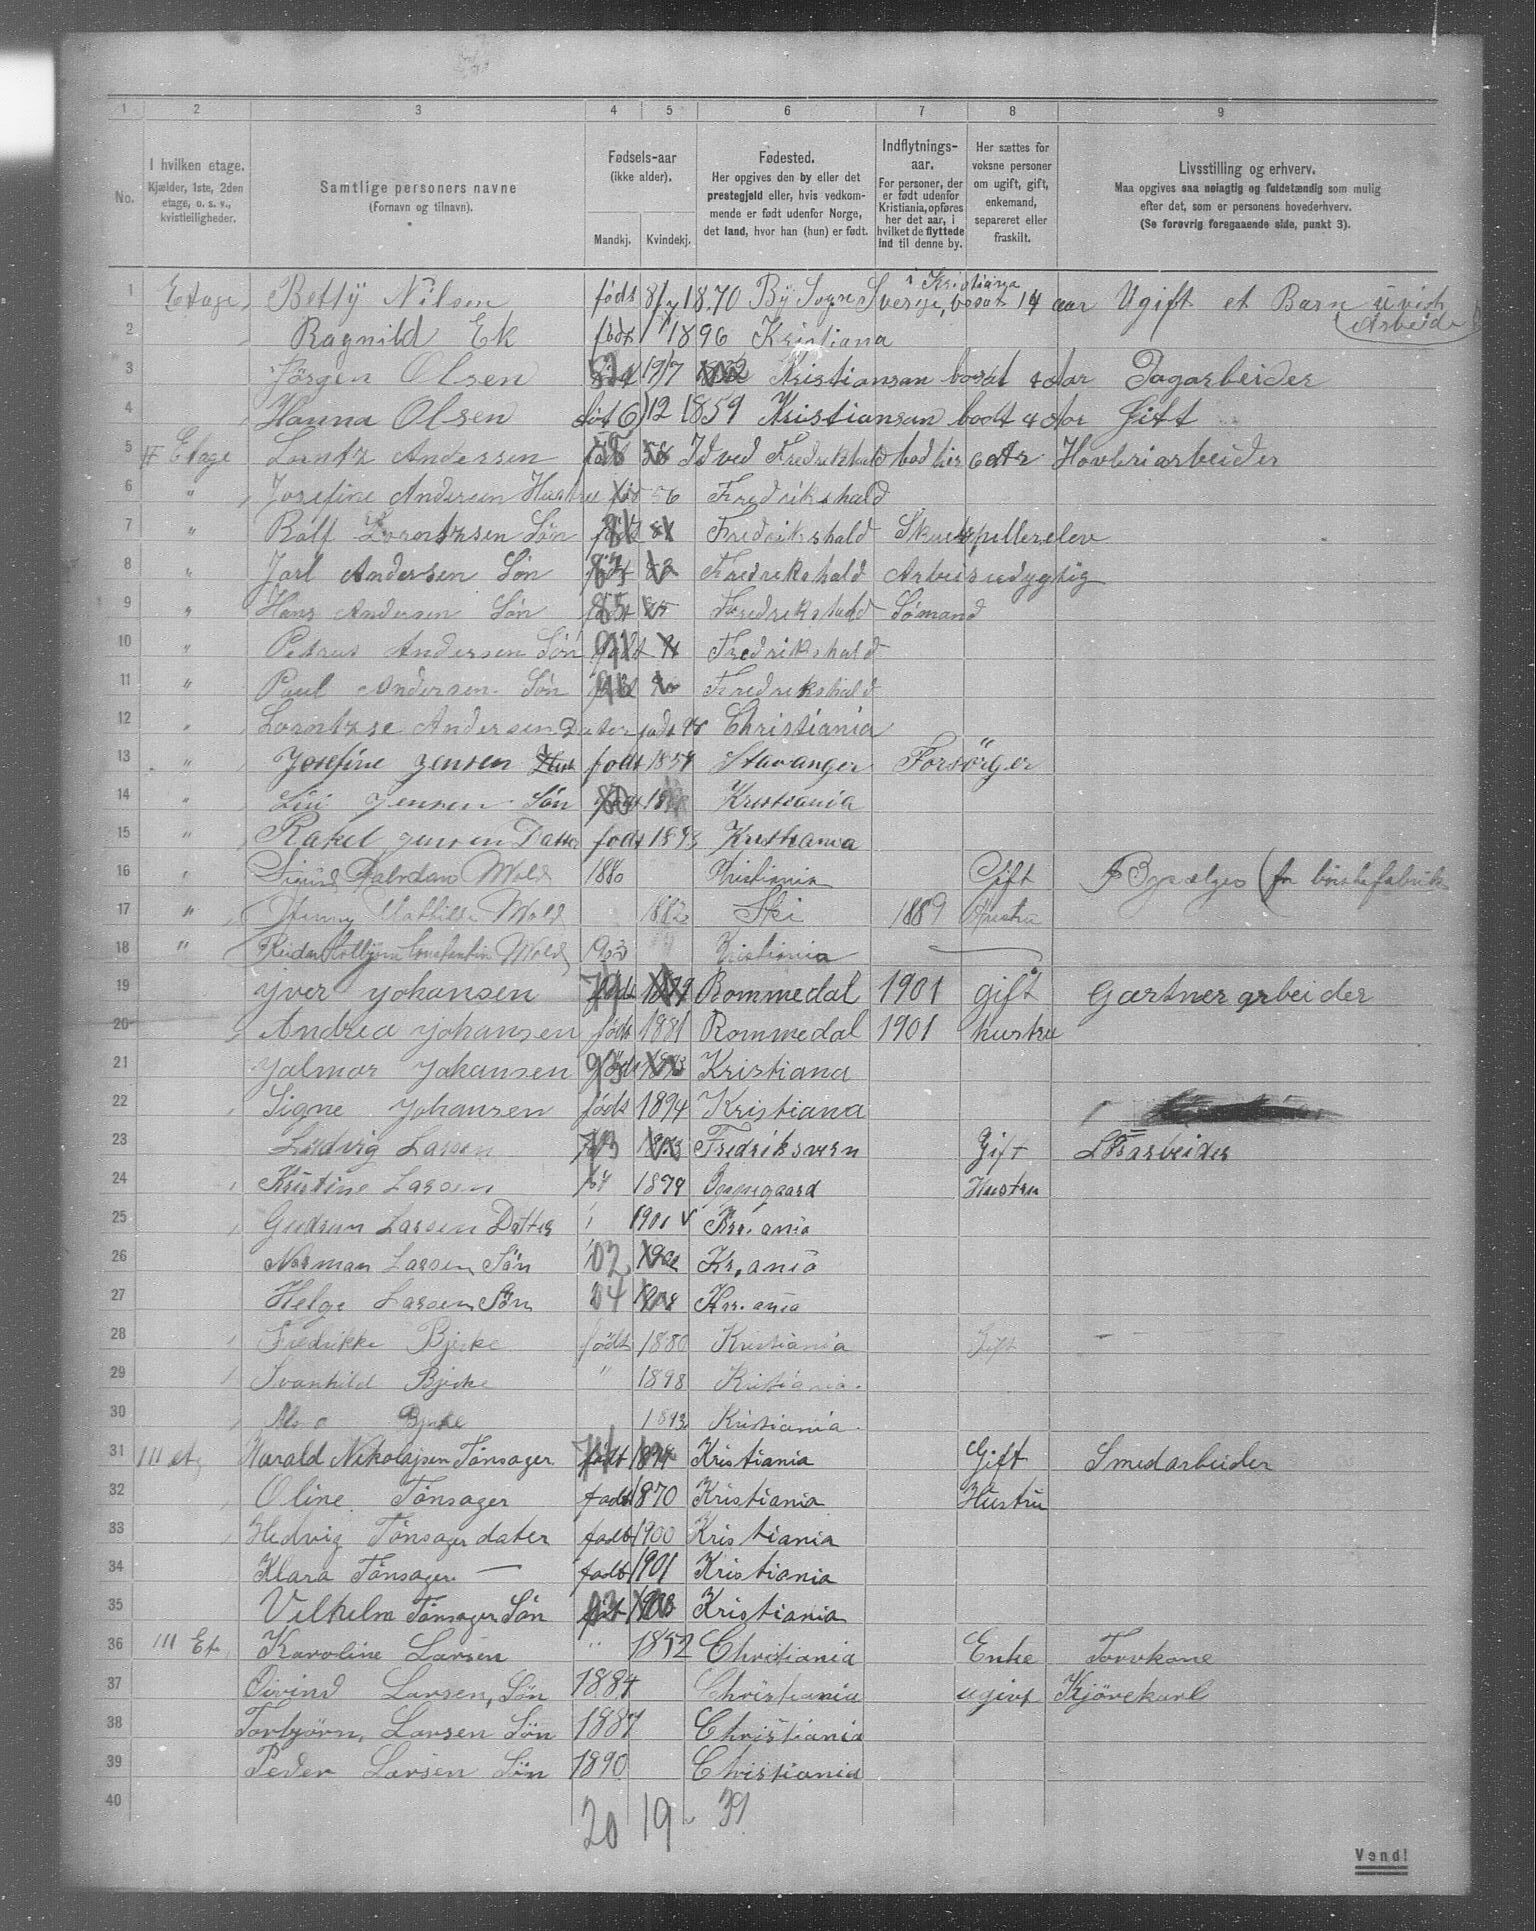 1 2 3 4 5 6 7 8 9
No.
I hvilken etage.
Kjælder, 1ste, 2den
etage, o. s. v.,
kvistleiligheder.
Samtlige personers navne
(Fornavn og tilnavn).
Fødsels-aar
(ikke alder).
Mandkj. Kvindekj.
Fødested.
Her opgives den by eller det
prestegjeld eller, hvis vedkom-
mende er født udenfor Norge,
det land, hvor han (hun) er født.
Indflytnings-
aar.
For personer, der
er født udenfor
Kristiania, opføres
her det aar, i
hvilket de flyttede
ind til denne by.
Her sættes for
voksne personer
om ugift, gift,
enkemand,
separeret eller
fraskilt.
Livsstilling og erhverv.
Maa opgives saa nøiagtig og fuldstændig som mulig
efter det, som er personens hovederhverv.
(Se forøvrig foregaaende side, punkt 3).
i Kristiania
1 Etage Betty Nilsen født 8/7 1870 By Sogn Sverge, bosat 14 aar Ugift et Barn
Arbeide
2 Ragnild Ek født 1896 Kristiana
3 Jörgen Olsen 19/7 Kristiansan bosat 4 Aar Dagarbeider
4 Hanna Olsen 12 1859 Kristiansan bosat 4 Aar Gift
5 II Etage Lorntz Andersen 58 Id ved Fredrikhald bod her 6 Aar Hövleriarbeider
6 " Josefine Andersen Hustru 56 Fredrikshald
7 " Rolf Lorntzsen Sön 81 Fredrikshald Skuespillerelev
8 " Jarl Andersen Sön 83 Fredrikshald Arbeisudygtig
9 " Hans Andersen Sön 85 Fredrikshald Sömand
10 " Petrus Andersen Sön 91 Fredrikshald
11 " Paul Andersen Sön Fredrikshald
12 " Lorntzse Andersen Dater født 98 Christiania
13 " Josefine Jensen født 1859 Stavanger Forsörger
14 " Jensen Sön 80 Kristiania
15 " Rakel Jensen Datter født 1893 Kristiania
16 Halvdan Mold 1880 Kristiania Gift
17 " Jenny Mathilde Mold 1882 Ski 1889 Hustru
18 " Reidar Kolbjörn Constantin Mold 1903 Kristiania
19 Yver Yohansen 79 1879 Rommedal 1901 gift Gartnerarbeider
20 Andrea Yohansen født 1881 Rommedal 1901 hustru
21 Yalmar Yohansen 93 1893 Kristiana
22 Signe Yohansen født 1894 Kristiana
23 Ludvig Larsen 73 1873 Fredriksvern Gift
24 Kristine Larsen 1879 Oppegaard Hustru
25 Gudrun Larsen Datter 1901 Kr.ania
26 Norman Larsen Sön 02 1902 Kr.ania
27 Helge Larsen Sön 04 Kr.ania
28 Fredrikke Bjerke født 1880 Kristiania Gift
29 Svanhild Bjerke " 1898 Kristiania.
30 Bjerke 1893 Kristiania.
31 III etg Harald Nikolajsen Tönsager 74 født 1874 Kristiania Gift Smedarbeider
32 Oline Tönsager født 1870 Kristiania Hustru
33 Hedvig Tönsager dater født 1900 Kristiania
34 Klara Tönsager — født 1901 Kristiania
35 Vilhelm Tönsager Sön 03 1903 Kristiania
36 III Et. Karoline Larsen " 1852 Christiania Enke Torvkone
37 Öivind Larsen, Sön 1884 Christiania ugivt Kjörekarl
38 Torbjörn, Larsen Sön 1887 Christiania
39 Peder Larsen Sön 1890 Christiania
40
20 19 39
Vend!